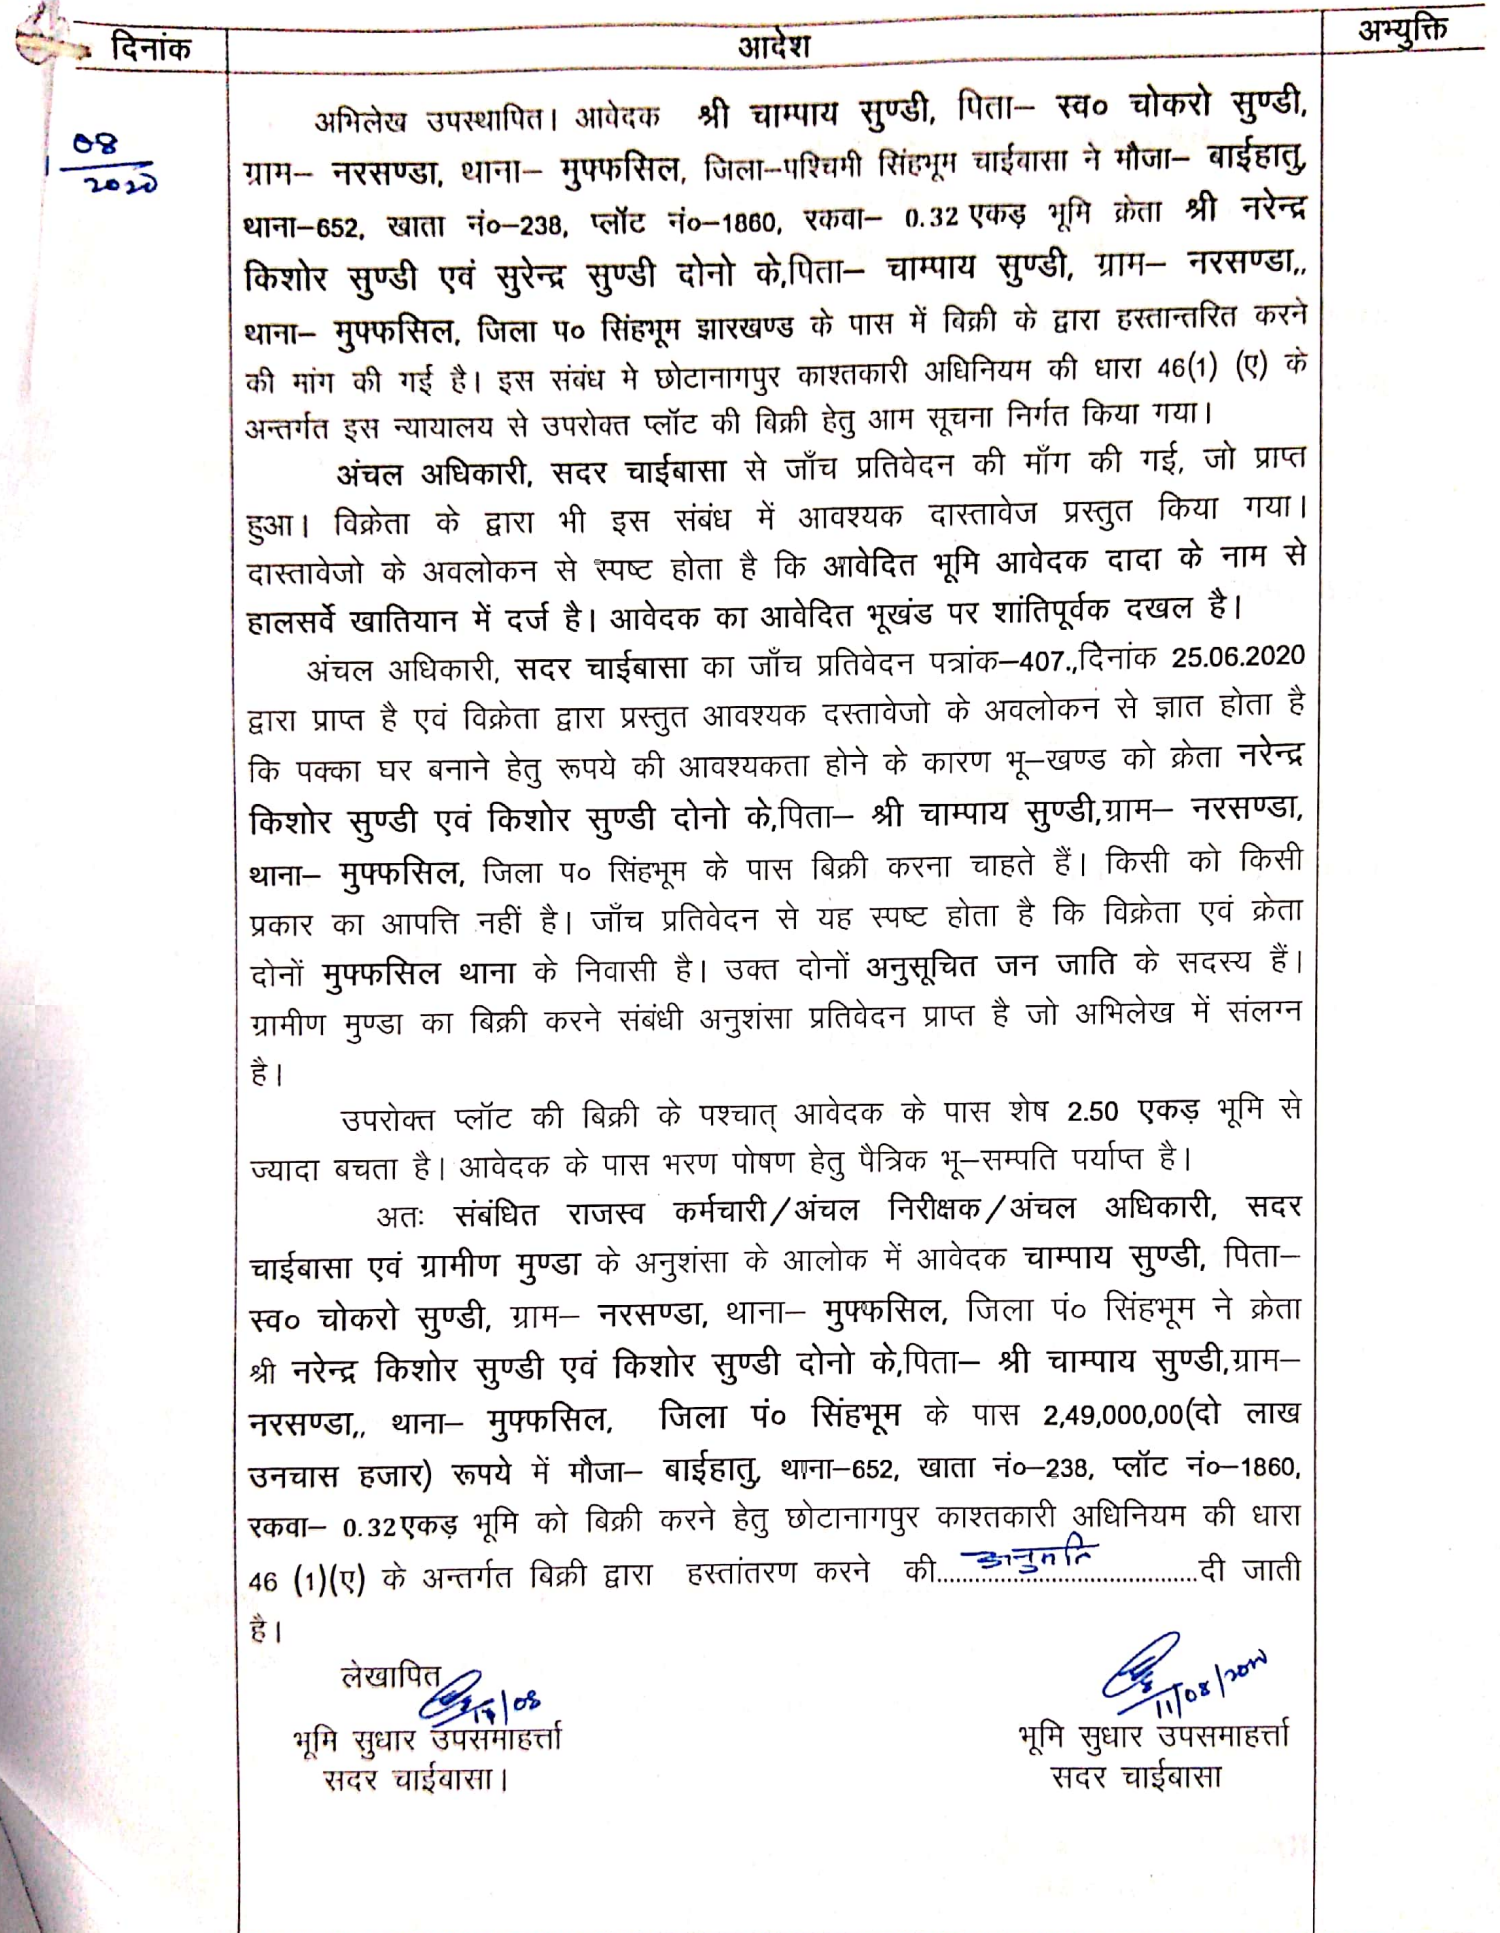 दिनांक आदेश अभ्युक्ति
08
2020
अभिलेख उपस्थापित। आवेदक श्री चाम्पाय सुण्डी, पिता– स्व० चोकरो सुण्डी,
ग्राम– नरसण्डा, थाना– मुफ्फसिल, जिला–पश्चिमी सिंहभूम चाईबासा ने मौजा– बाईहातु,
थाना–652, खाता नं०–238, प्लॉट नं०–1860, रकवा– 0.32 एकड़ भूमि क्रेता श्री नरेन्द्र
किशोर सुण्डी एवं सुरेन्द्र सुण्डी दोनो के,पिता– चाम्पाय सुण्डी, ग्राम– नरसण्डा,,
थाना– मुफ्फसिल, जिला प० सिंहभूम झारखण्ड के पास में बिक्री के द्वारा हस्तान्तरित करने
की मांग की गई है। इस संबंध मे छोटानागपुर काश्तकारी अधिनियम की धारा 46(1) (ए) के
अन्तर्गत इस न्यायालय से उपरोक्त प्लॉट की बिक्री हेतु आम सूचना निर्गत किया गया।
अंचल अधिकारी, सदर चाईबासा से जाँच प्रतिवेदन की माँग की गई, जो प्राप्त
हुआ। विक्रेता के द्वारा भी इस संबंध में आवश्यक दास्तावेज प्रस्तुत किया गया।
दास्तावेजो के अवलोकन से स्पष्ट होता है कि आवेदित भूमि आवेदक दादा के नाम से
हालसर्वे खातियान में दर्ज है। आवेदक का आवेदित भूखंड पर शांतिपूर्वक दखल है।
अंचल अधिकारी, सदर चाईबासा का जाँच प्रतिवेदन पत्रांक–407.,दिनांक 25.06.2020
द्वारा प्राप्त है एवं विक्रेता द्वारा प्रस्तुत आवश्यक दस्तावेजो के अवलोकन से ज्ञात होता है
कि पक्का घर बनाने हेतु रूपये की आवश्यकता होने के कारण भू–खण्ड को क्रेता नरेन्द्र
किशोर सुण्डी एवं किशोर सुण्डी दोनो के,पिता– श्री चाम्पाय सुण्डी,ग्राम– नरसण्डा,
थाना– मुफ्फसिल, जिला प० सिंहभूम के पास बिक्री करना चाहते हैं। किसी को किसी
प्रकार का आपत्ति नहीं है। जाँच प्रतिवेदन से यह स्पष्ट होता है कि विक्रेता एवं क्रेता
दोनों मुफ्फसिल थाना के निवासी है। उक्त दोनों अनुसूचित जन जाति के सदस्य हैं।
ग्रामीण मुण्डा का बिक्री करने संबंधी अनुशंसा प्रतिवेदन प्राप्त है जो अभिलेख में संलग्न
है।
उपरोक्त प्लॉट की बिक्री के पश्चात् आवेदक के पास शेष 2.50 एकड़ भूमि से
ज्यादा बचता है। आवेदक के पास भरण पोषण हेतु पैत्रिक भू–सम्पति पर्याप्त है।
अतः संबंधित राजस्व कर्मचारी/अंचल निरीक्षक/अंचल अधिकारी, सदर
चाईबासा एवं ग्रामीण मुण्डा के अनुशंसा के आलोक में आवेदक चाम्पाय सुण्डी, पिता–
स्व० चोकरो सुण्डी, ग्राम– नरसण्डा, थाना– मुफ्फसिल, जिला पं० सिंहभूम ने क्रेता
श्री नरेन्द्र किशोर सुण्डी एवं किशोर सुण्डी दोनो के,पिता– श्री चाम्पाय सुण्डी,ग्राम–
नरसण्डा,, थाना– मुफ्फसिल, जिला पं० सिंहभूम के पास 2,49,000,00(दो लाख
उनचास हजार) रूपये में मौजा– बाईहातु, थाना–652, खाता नं०–238, प्लॉट नं०–1860,
रकवा– 0.32एकड़ भूमि को बिक्री करने हेतु छोटानागपुर काश्तकारी अधिनियम की धारा
46 (1)(ए) के अन्तर्गत बिक्री द्वारा हस्तांतरण करने की....अनुमति....दी जाती
है।
लेखापित
/08 11/08/2020
भूमि सुधार उपसमाहर्त्ता भूमि सुधार उपसमाहर्त्ता
सदर चाईबासा। सदर चाईबासा